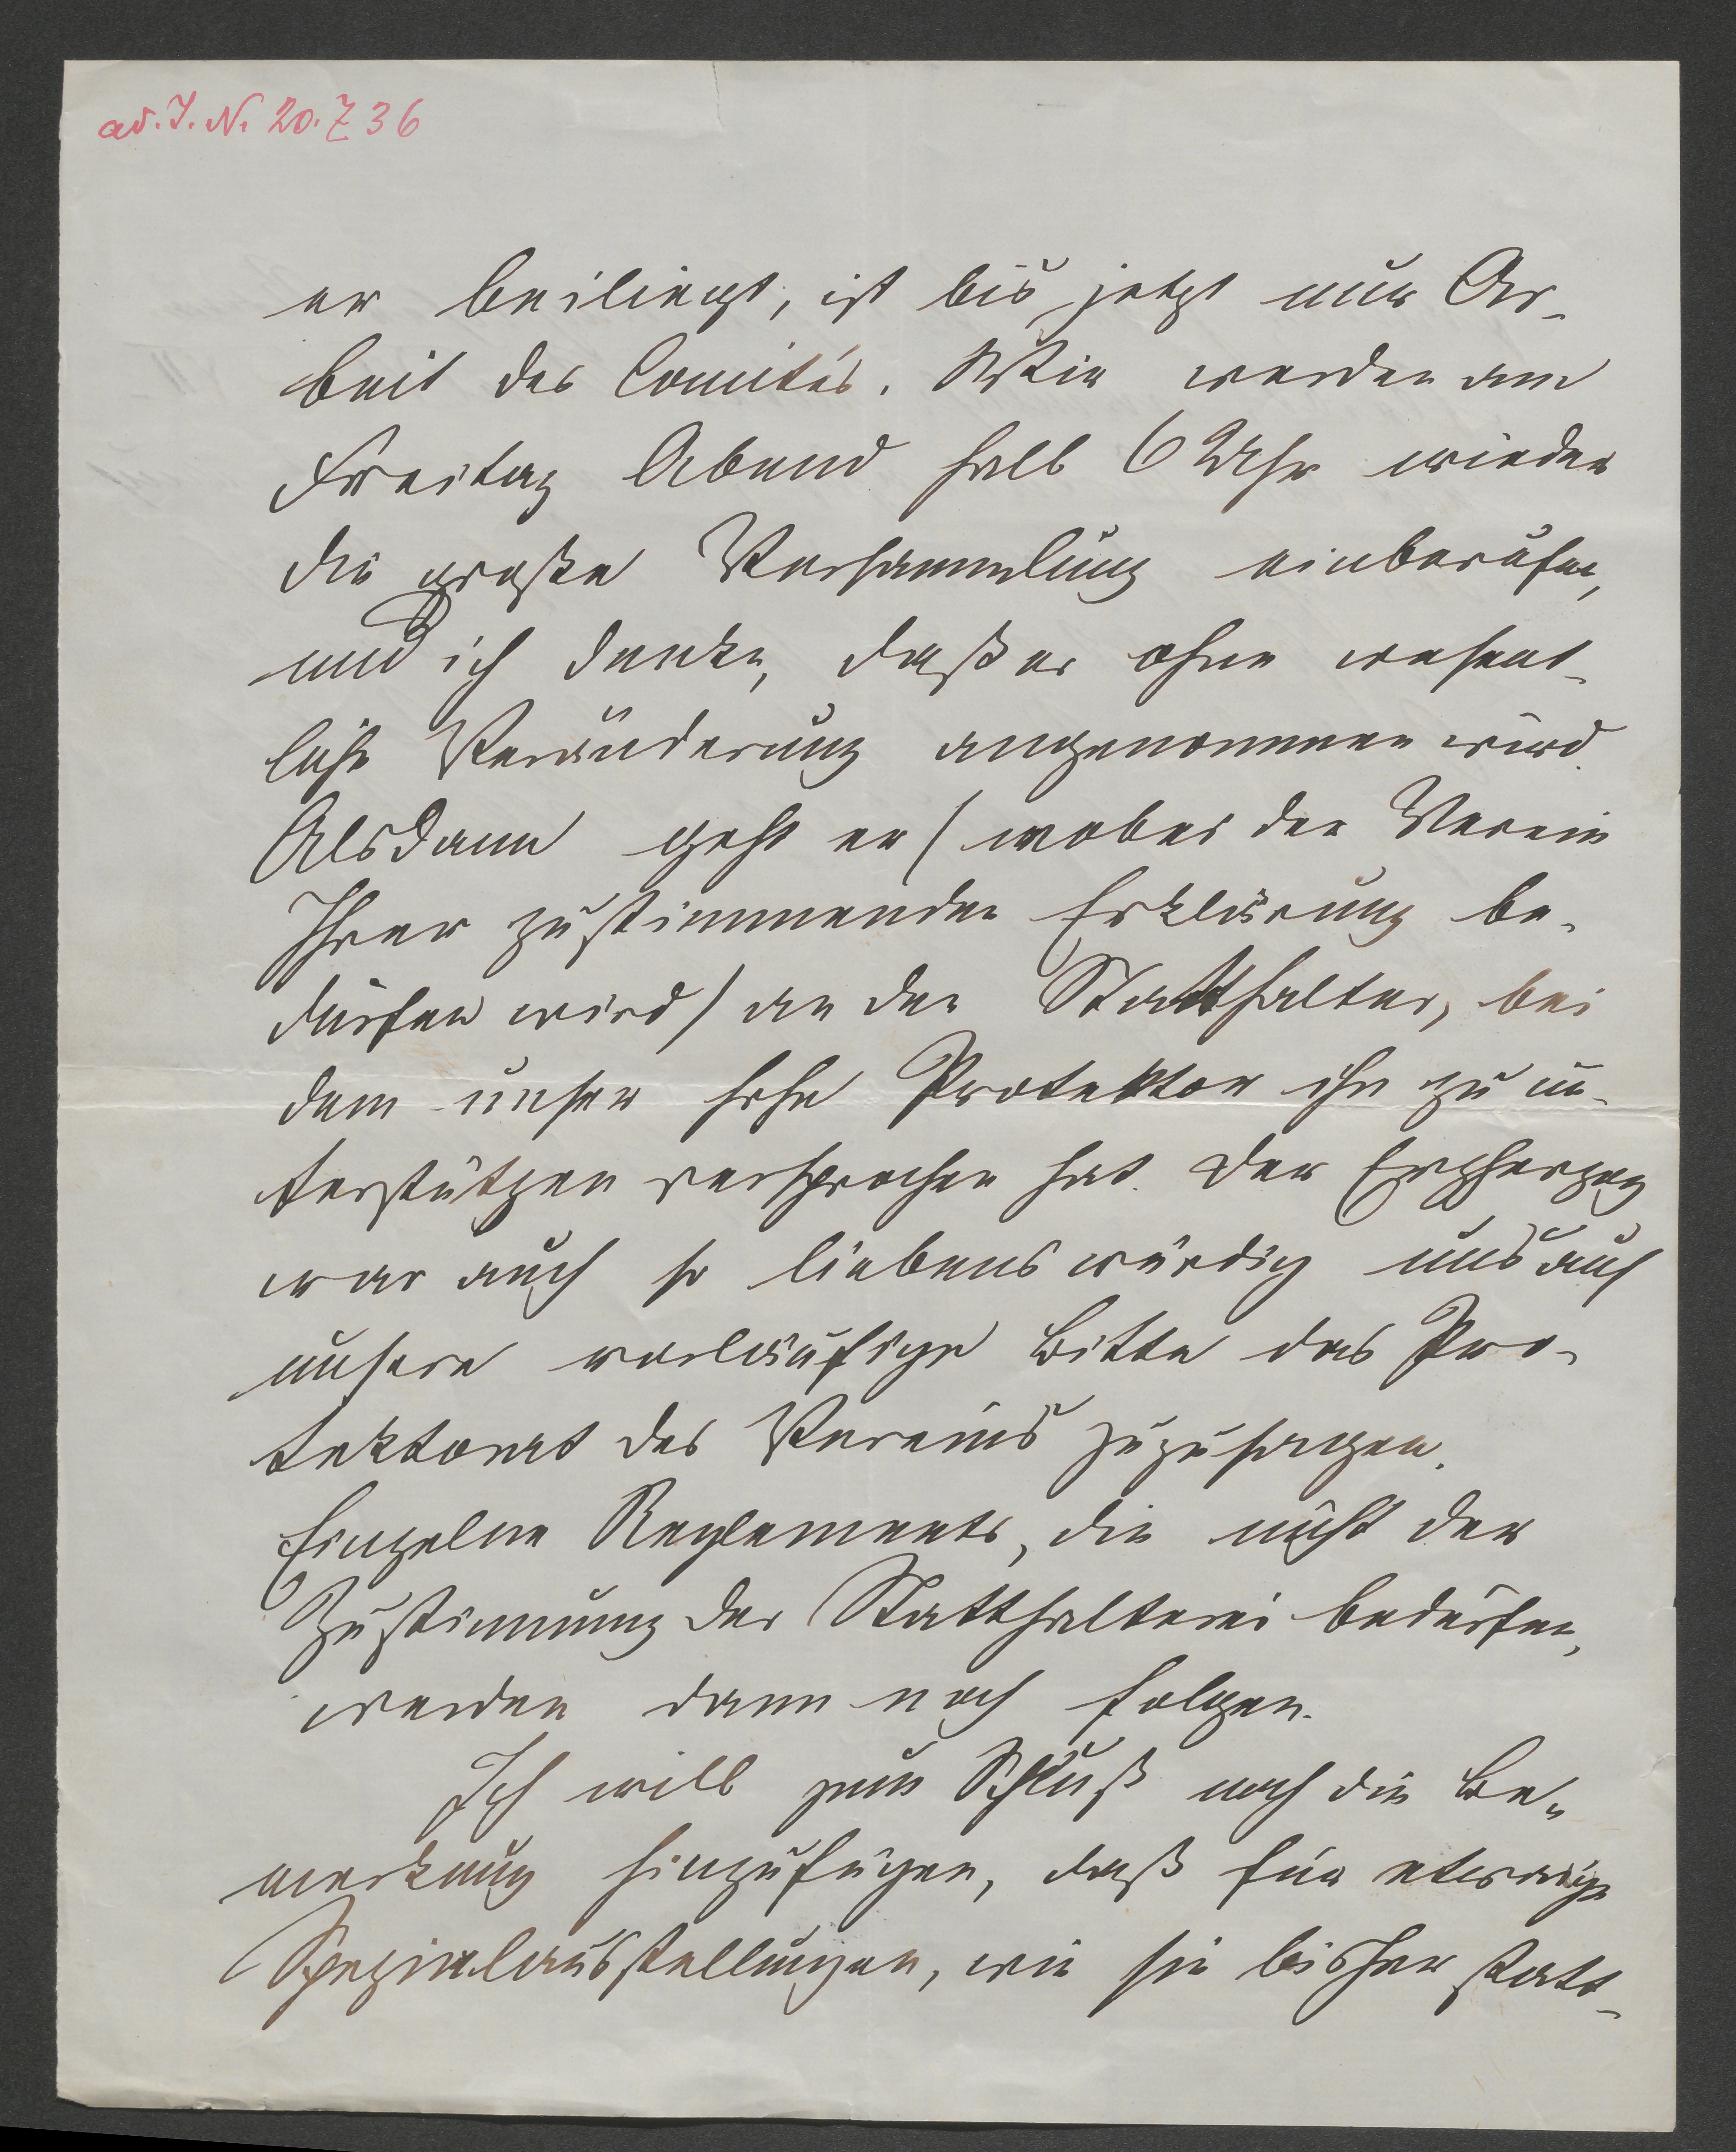 ad. J. N. 20.736
er beiliegt, ist bis jetzt nur Ar-
beit des Comités. Wir werden am
Freitag Abend halb 6 Uhr wieder
die große Versammlung einberufen,
und ich denke, daß er ohne wesent-
liche Veränderung angenommen wird.
Alsdann geht er (wobei der Verein
Ihrer zustimmenden Erklärung be-
dürfen wird) an den Statthalter, bei
dem unser hohe Protektor ihn zu un-
terstützen versprochen hat. Der Erzherzog
war auch so liebenswürdig uns auf
unsere vorläufige Bitte das Pro-
tektorat des Vereins zuzusagen.
Einzelne Reglements, die nicht der
Zustimmung der Statthalterei bedürfen,
werden dann noch folgen.
Ich will zum Schluß noch die Be-
merkung hinzufügen, daß für etwaige
Spezialausstellungen, wie sie bisher statt-